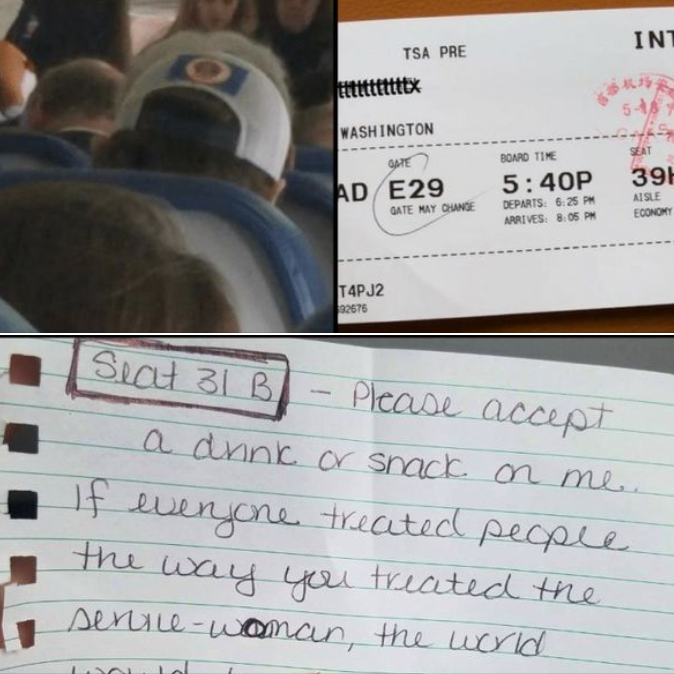 TSA PRE INT
WASHINGTON
GATE BOARD TIME SEAT
AD E29 5:40P 39H
GATE MAY CHANGE DEPARTS: 6:25 PM AISLE
ARRIVES: 8:05 PM ECONOMY
T4PJ2
92676
Seat 31 B - Please accept
a drink or snack on me.
If everyone treated people
the way you treated the
service-woman, the world